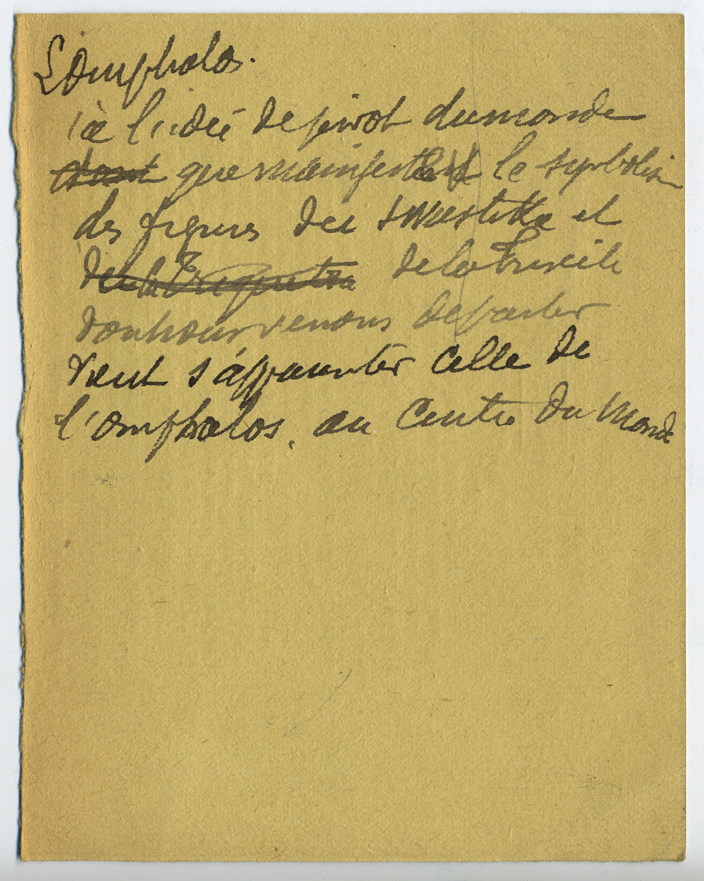 L'omphalos.
à l'idée de pivot du monde
dont que manifeste le symbolism
des figures du swastika et
de la Triquetra de la
dont nous venons de parler
vient s'apparenter celle de
l'omphalos, au Centre du Monde